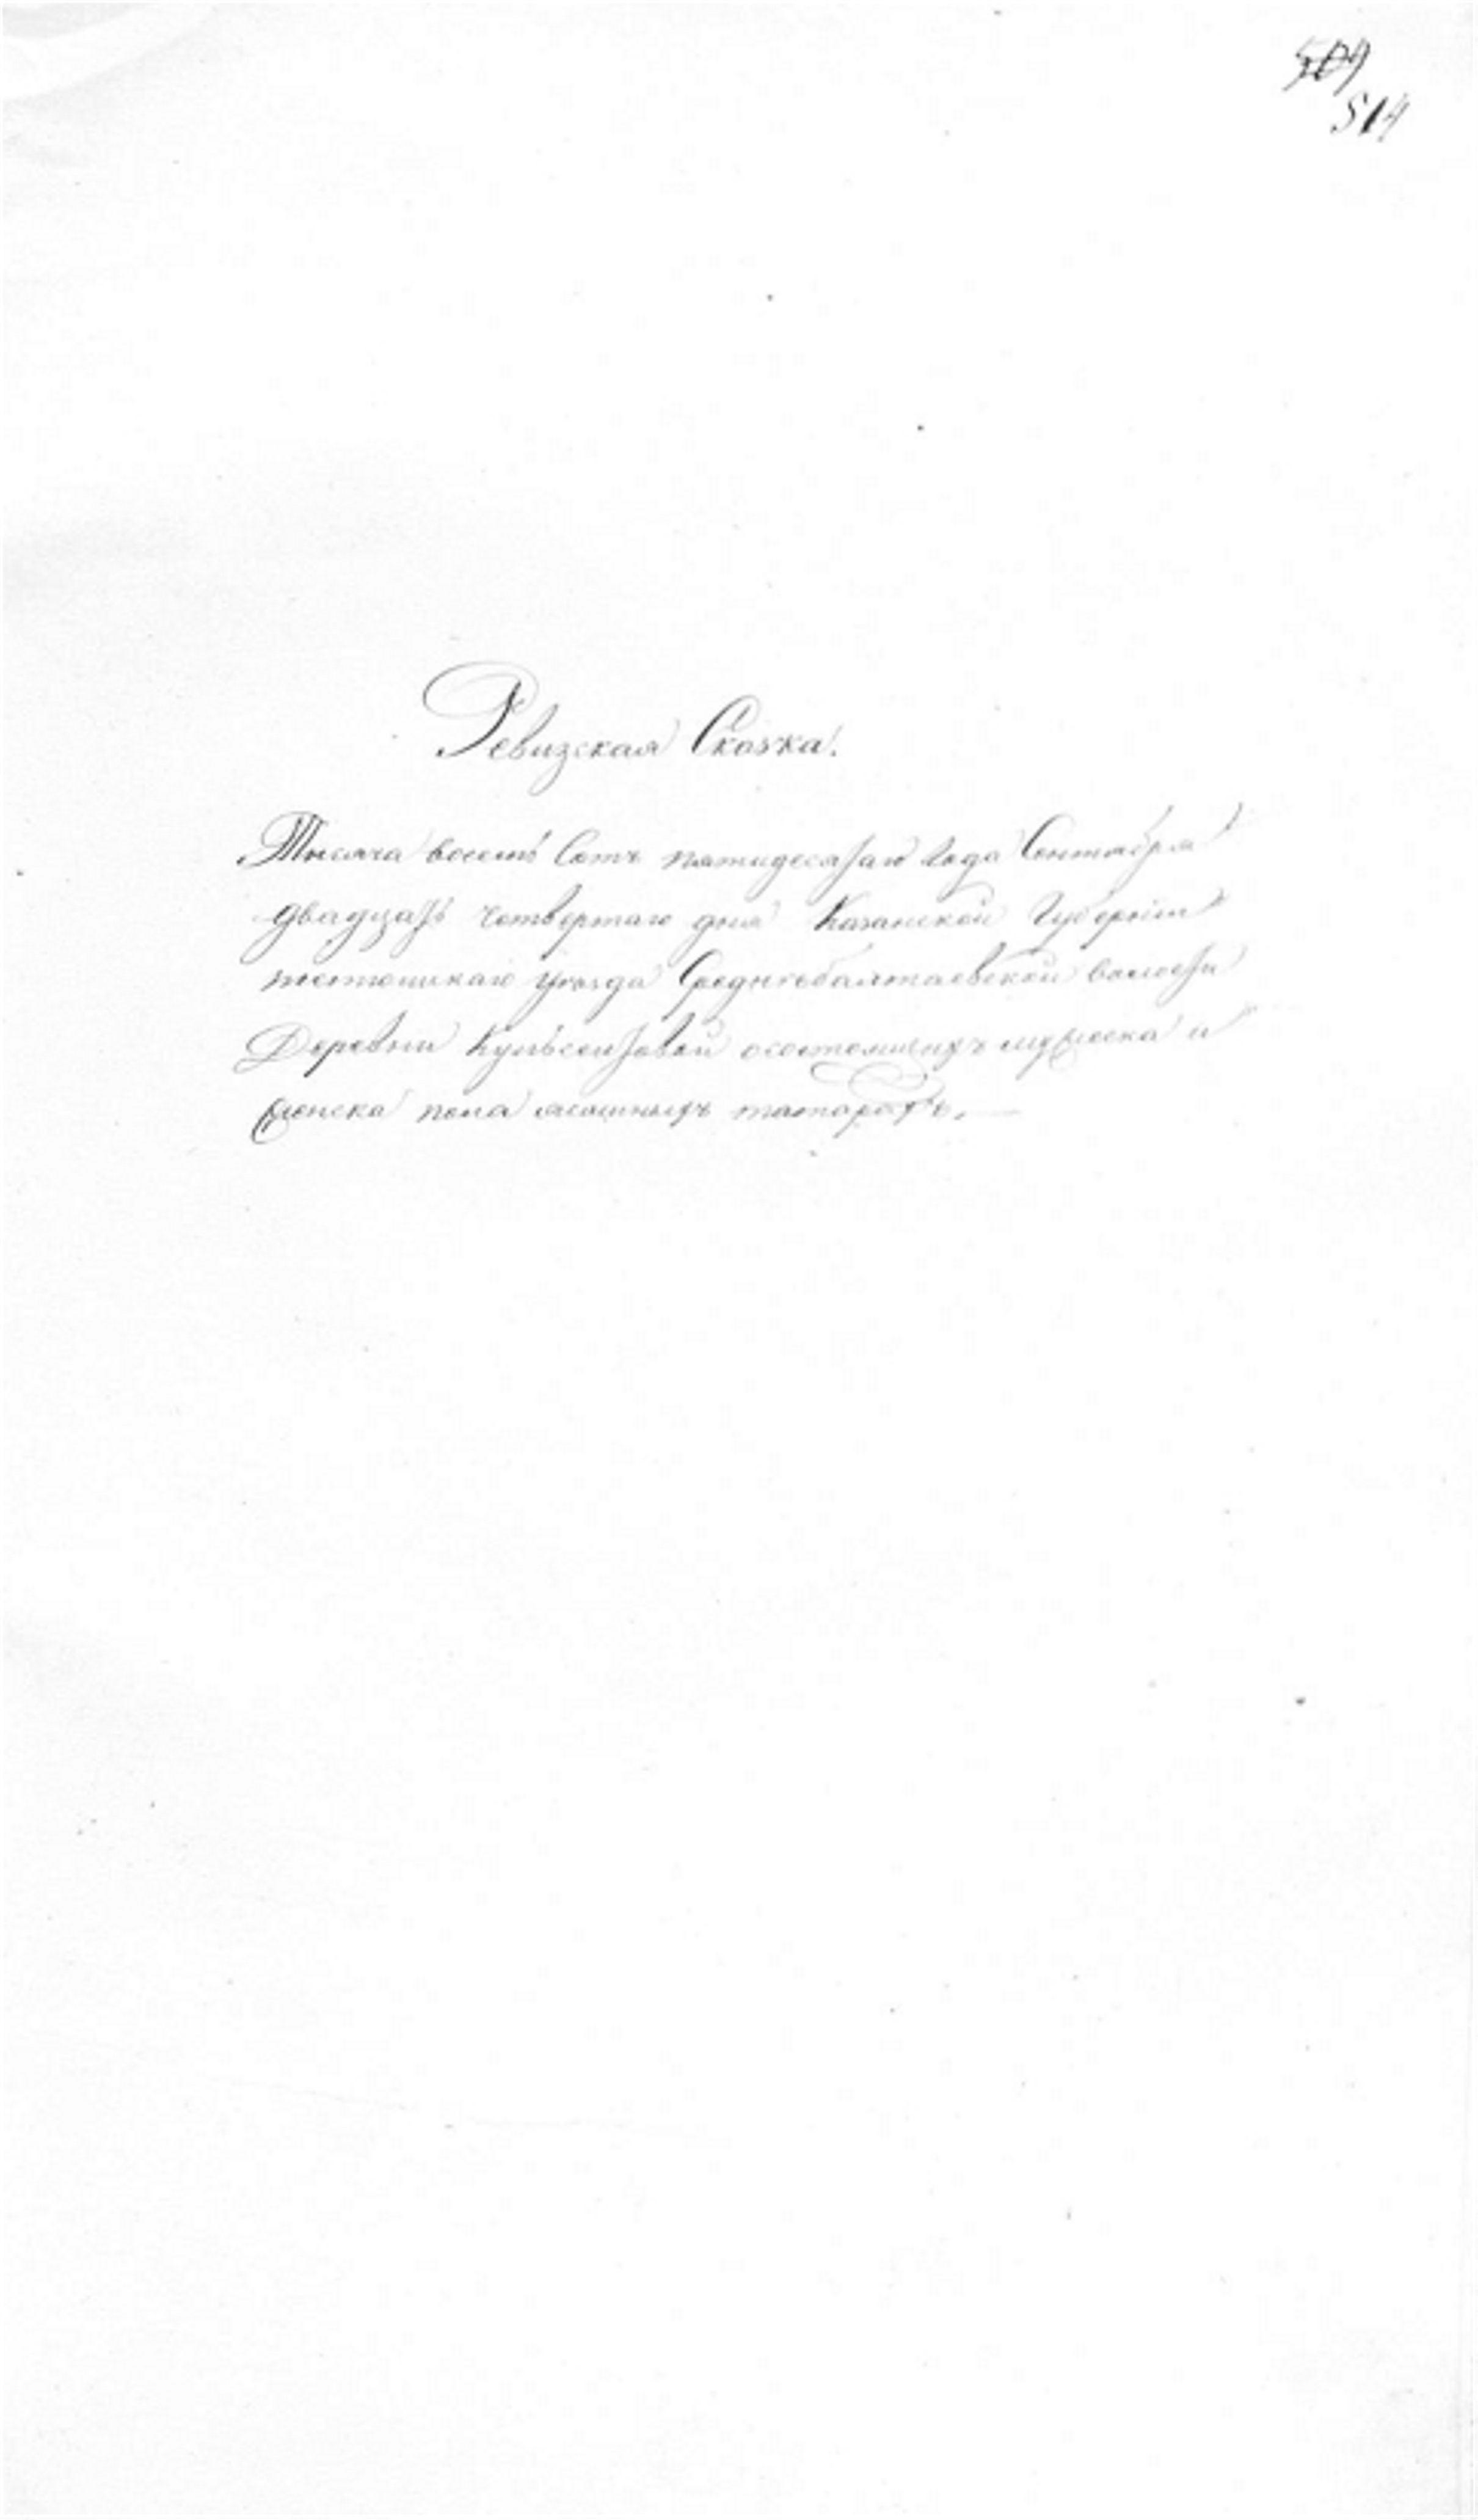 509
514
Ревизская Сказка.
Тысяча восемь Сотъ пятидесятаго Года Сентября
двадцать четвертаго дня Казанской Губернiи
тетюшкаго уезда Среднебалтаевской волости
Деревни Кульсеитовой осостоящихъ мужеска и
женска пола ясашныхъ татарахъ.